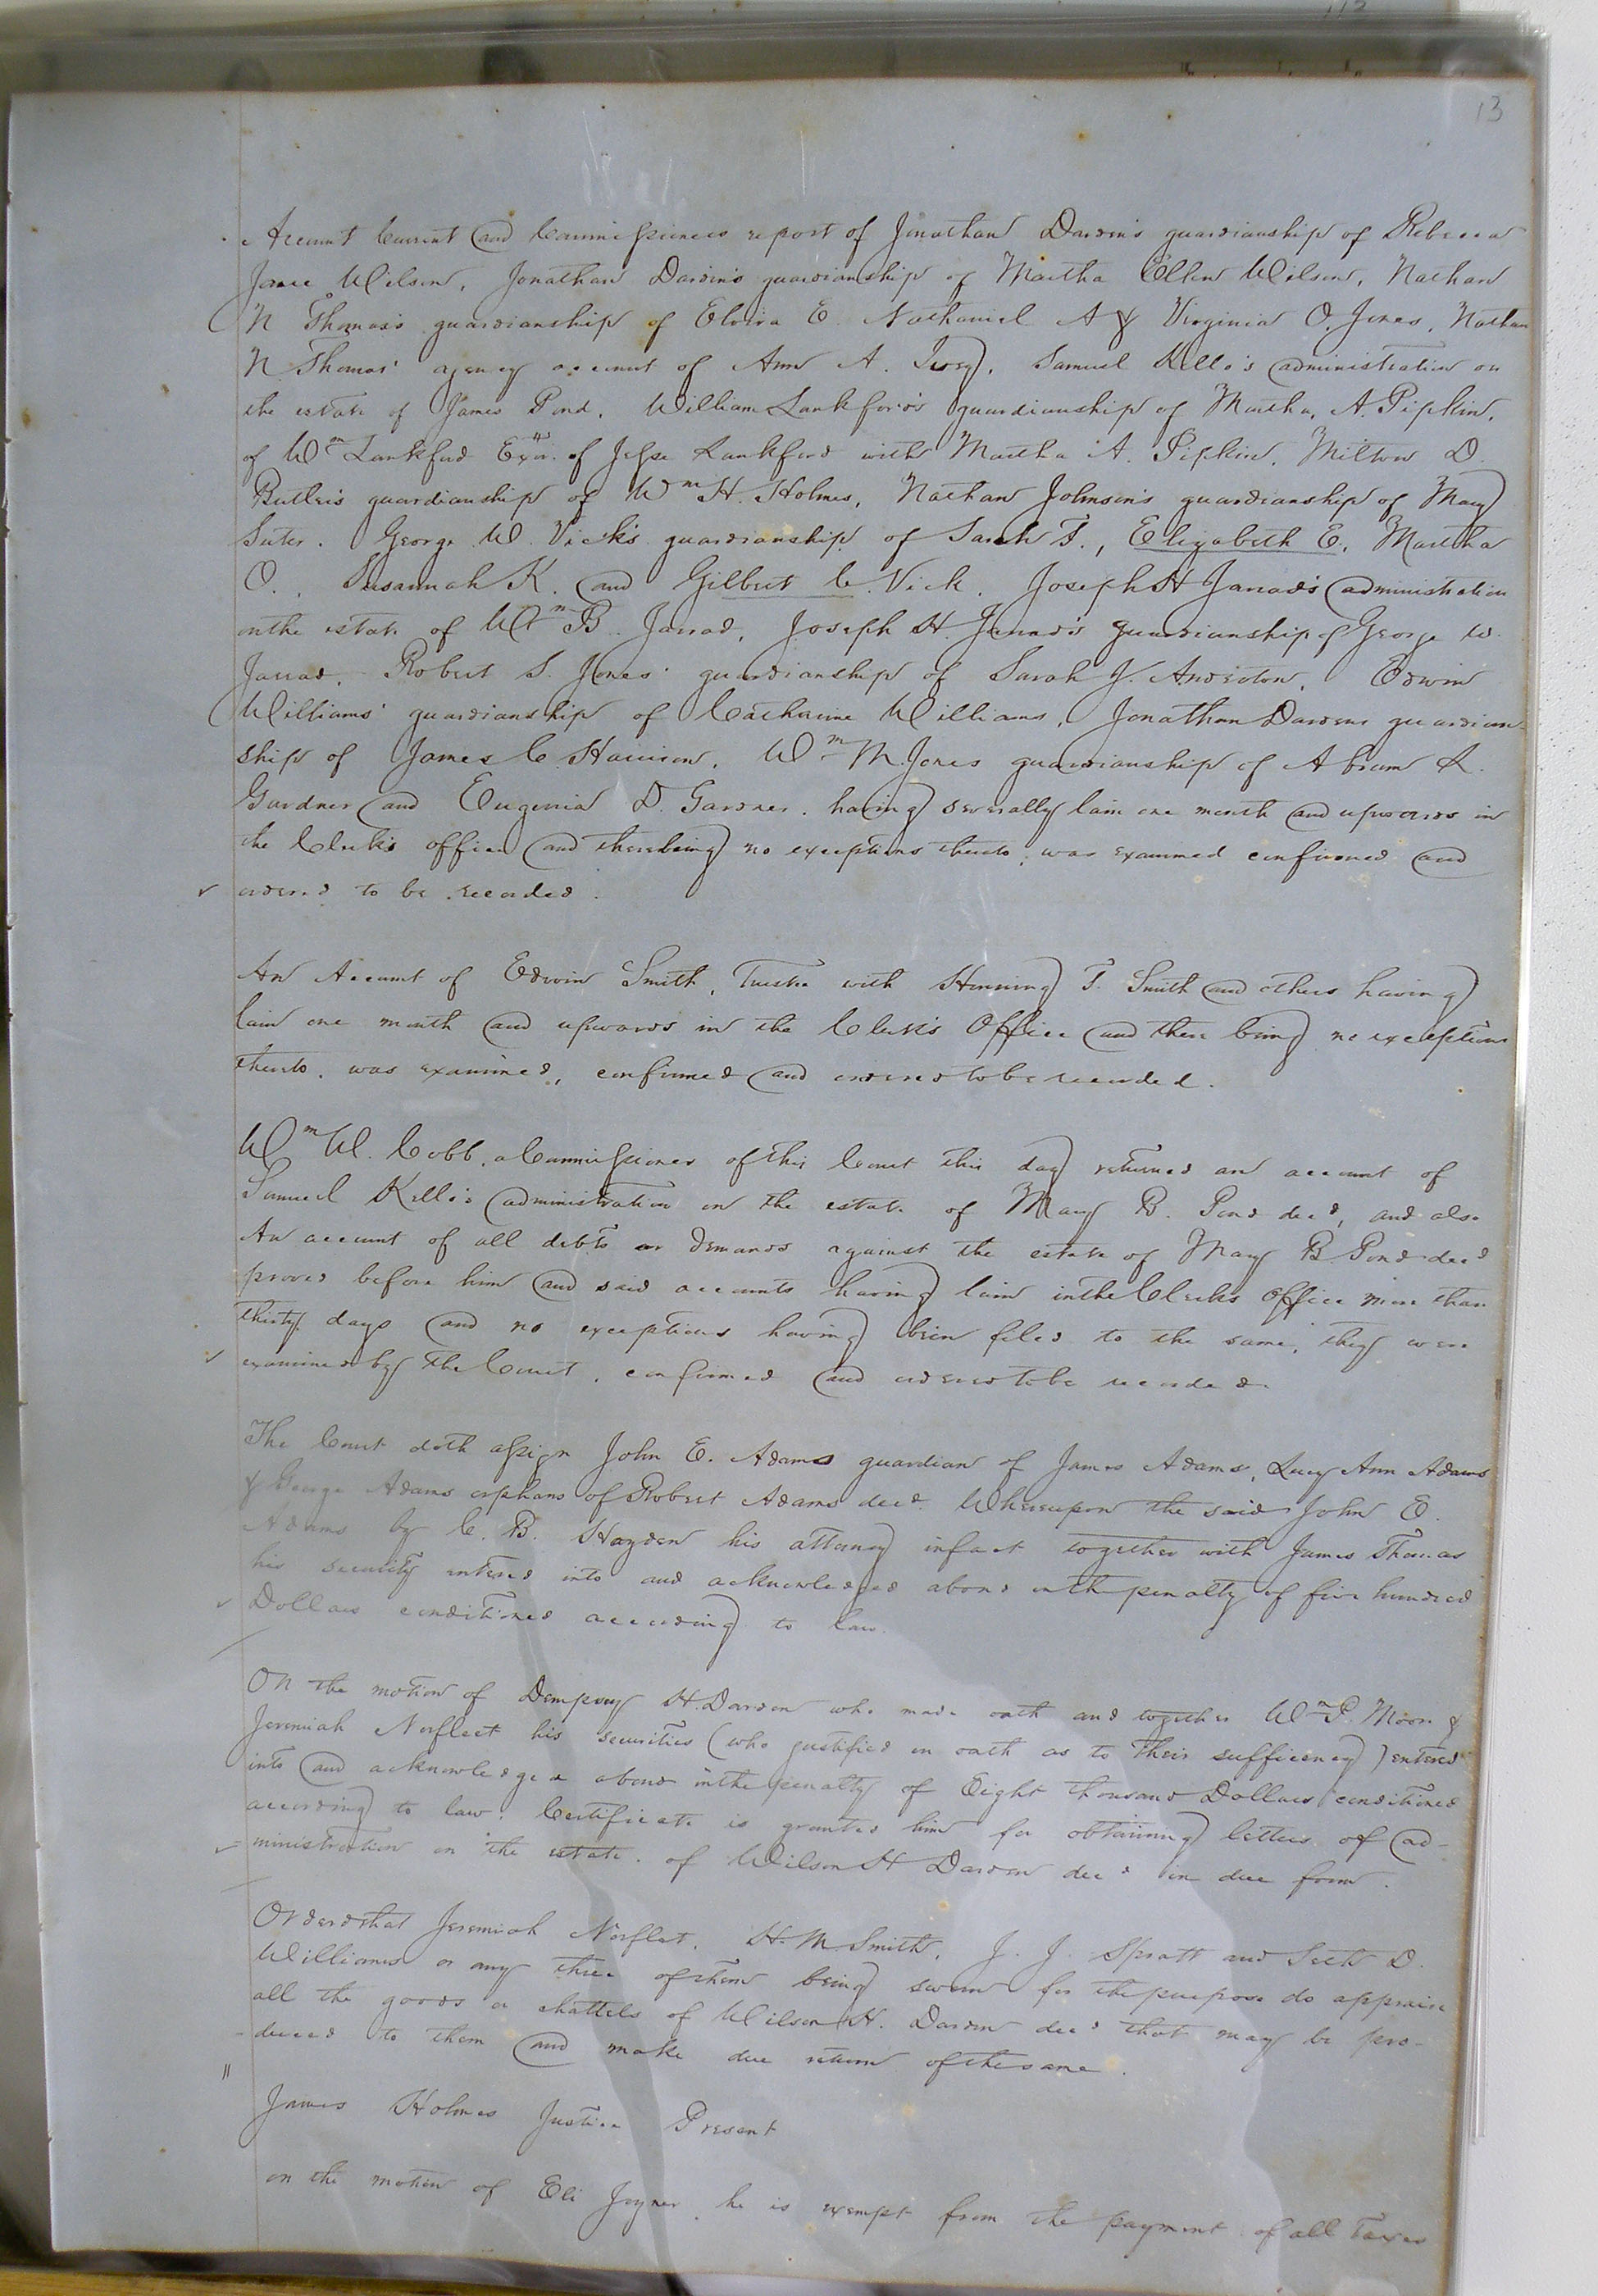 13
Account Current and Commissioners report of Jonathan Darden's guardianship of Rebecca
Jane Wilson, Jonathan Darden's guardianship of Martha Ellen Wilson, Nathan
N Thomas's guardianship of Elvira E Nathaniel A & Virginia O. Jones, Nathan
N. Thomas' agency account of Ann A. Ivey, Samuel Kello's administration on
the estate of James Pond, William Lankford's guardianship of Martha, A. Pipkin,
of Wm Lankford Exor. of Jesse Lankford with Martha A. Pipkin, Milton D.
Butler's guardianship of Wm H. Holmes, Nathan Johnson's guardianship of Mary
Suter. George W. Vick's guardianship of Sarah F., Elizabeth E, Martha
O., Susannah K. and Gilbert C. Vick, Joseph H Jarrad's administration
on the estate of Wm B. Jarrad, Joseph H. Jarrad's guardianship of George W.
Jarrad, Robert S. Jones' guardianship of Sarah J. Anderton, Edwin
Williams' guardianship of Catharine Williams, Jonathan Dardens guardian-
ship of James C. Harrison, Wm M. Jones guardianship of Abram R.
Gardner and Eugenia D. Gardner, having severally lain one month and upwards in
the Clerk's office and there being no exceptions thereto, was examined confirmed and
ordered to be recorded.
An Account of Edwin Smith, Trustee with Henning T. Smith and others having
lain one month and upwards in the Clerk's Office and there being no exceptions
thereto, was examined, confirmed and ordered to be recorded.
Wm W. Cobb, a Commissioner of this Court this day returned an account of
Samuel Kello's administration on the estate of Mary B. Pond decd, and also
An account of all debts or demands against the estate of Mary B. Pond decd
proved before him and said accounts having lain in the Clerks office more than
thirty days and no exceptions having been filed to the same, they were
examined by the Court, confirmed and ordered to be recorded.
The Court doth assign John E. Adams guardian of James Adams, Lucy Ann Adams
& George Adams orphans of Robert Adams decd. Whereupon the said John E.
Adams by C. B. Hayden his attorney in fact together with James Thomas
his security entered into and acknowledged a bond in the penalty of five hundred
Dollars conditioned according to law.
On the motion of Dempsey H. Darden who made oath and together Wm P. Moore &
Jeremiah Norfleet his securities (who justified on oath as to their sufficiency) entered
into and acknowledged a bond in the penalty of Eight thousand Dollars conditioned
according to law: Certificate is granted him for obtaining letters of ad-
ministration on the estate of Wilson H Darden decd in due form.
Ordered that Jeremiah Norflet, H. M. Smith, J. J. Spratt and Seth D.
Williams or any three of them being sworn for the purpose do appraise
all the goods or chattels of Wilson H. Darden decd that may be pro-
duced to them and make due return of the same.
James Holmes Justice Present
on the motion of Eli Joyner he is exempt from the payment of all Taxes